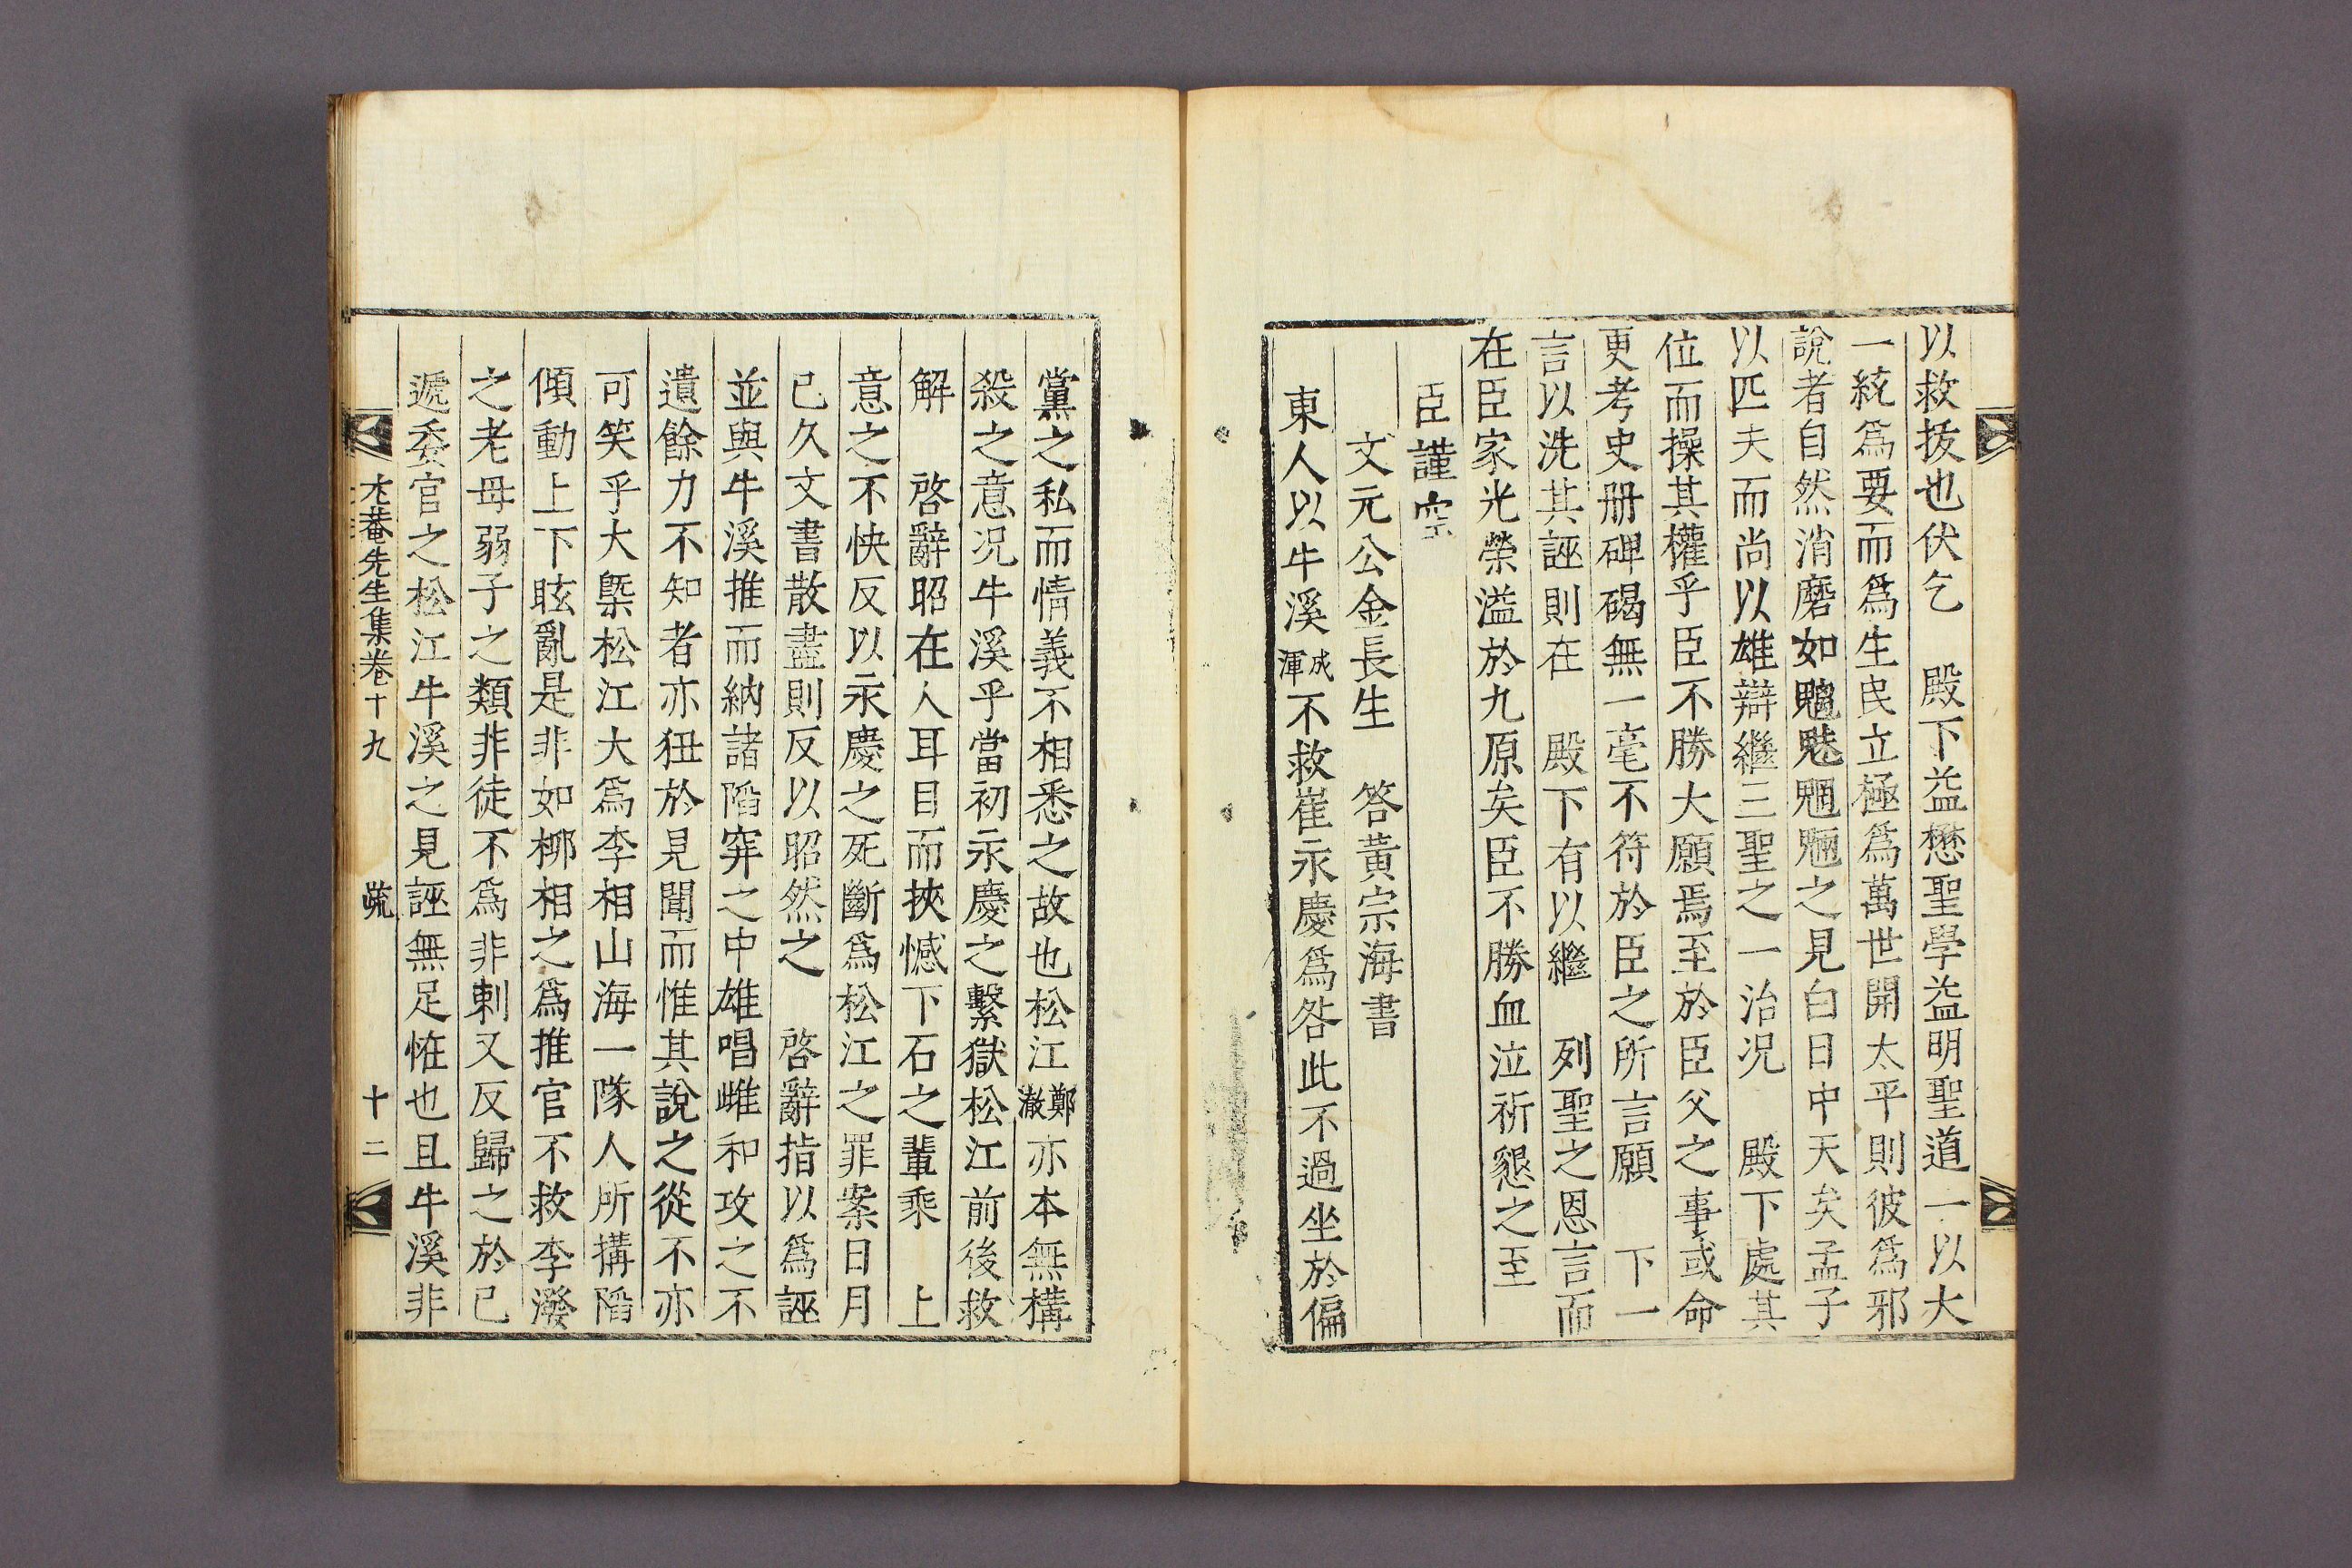 以救拔也伏乞　殿下益懋聖學益明聖道一以大
一統爲要而爲生民立極爲萬世開太平則彼爲邪
說者自然消磨如魑魅魍魎之見白日中天矣孟子
以匹夫而尚以雄辯繼三聖之一治况　殿下處其
位而操其權乎臣不勝大願焉至於臣父之事或命
更考史册碑碣無一毫不符於臣之所言願　下一
言以洗其誣則在　殿下有以繼　列聖之恩言而
在臣家光榮溢於九原矣臣不勝血泣祈懇之至
臣謹空
文元公金長生　答黃宗海書
東人以牛溪成渾不救崔永慶爲咎此不過坐於偏
黨之私而情義不相悉之故也松江鄭澈亦本無構
殺之意况牛溪乎當初永慶之繫獄松江前後救
解　啓辭昭在人耳目而挾憾下石之輩乘　上
意之不快反以永慶之死斷爲松江之罪案日月
已久文書散盡則反以昭然之　啓辭指以爲誣
並與牛溪推而納諸陷穽之中雄唱雌和攻之不
遺餘力不知者亦狃於見聞而惟其說之從不亦
可笑乎大槩松江大爲李相山海一隊人所搆陷
傾動上下眩亂是非如柳相之爲推官不救李潑
之老母弱子之類非徒不爲非刺又反歸之於己
遞委官之松江牛溪之見誣無足恠也且牛溪非
尤菴先生集卷十九　疏　十二